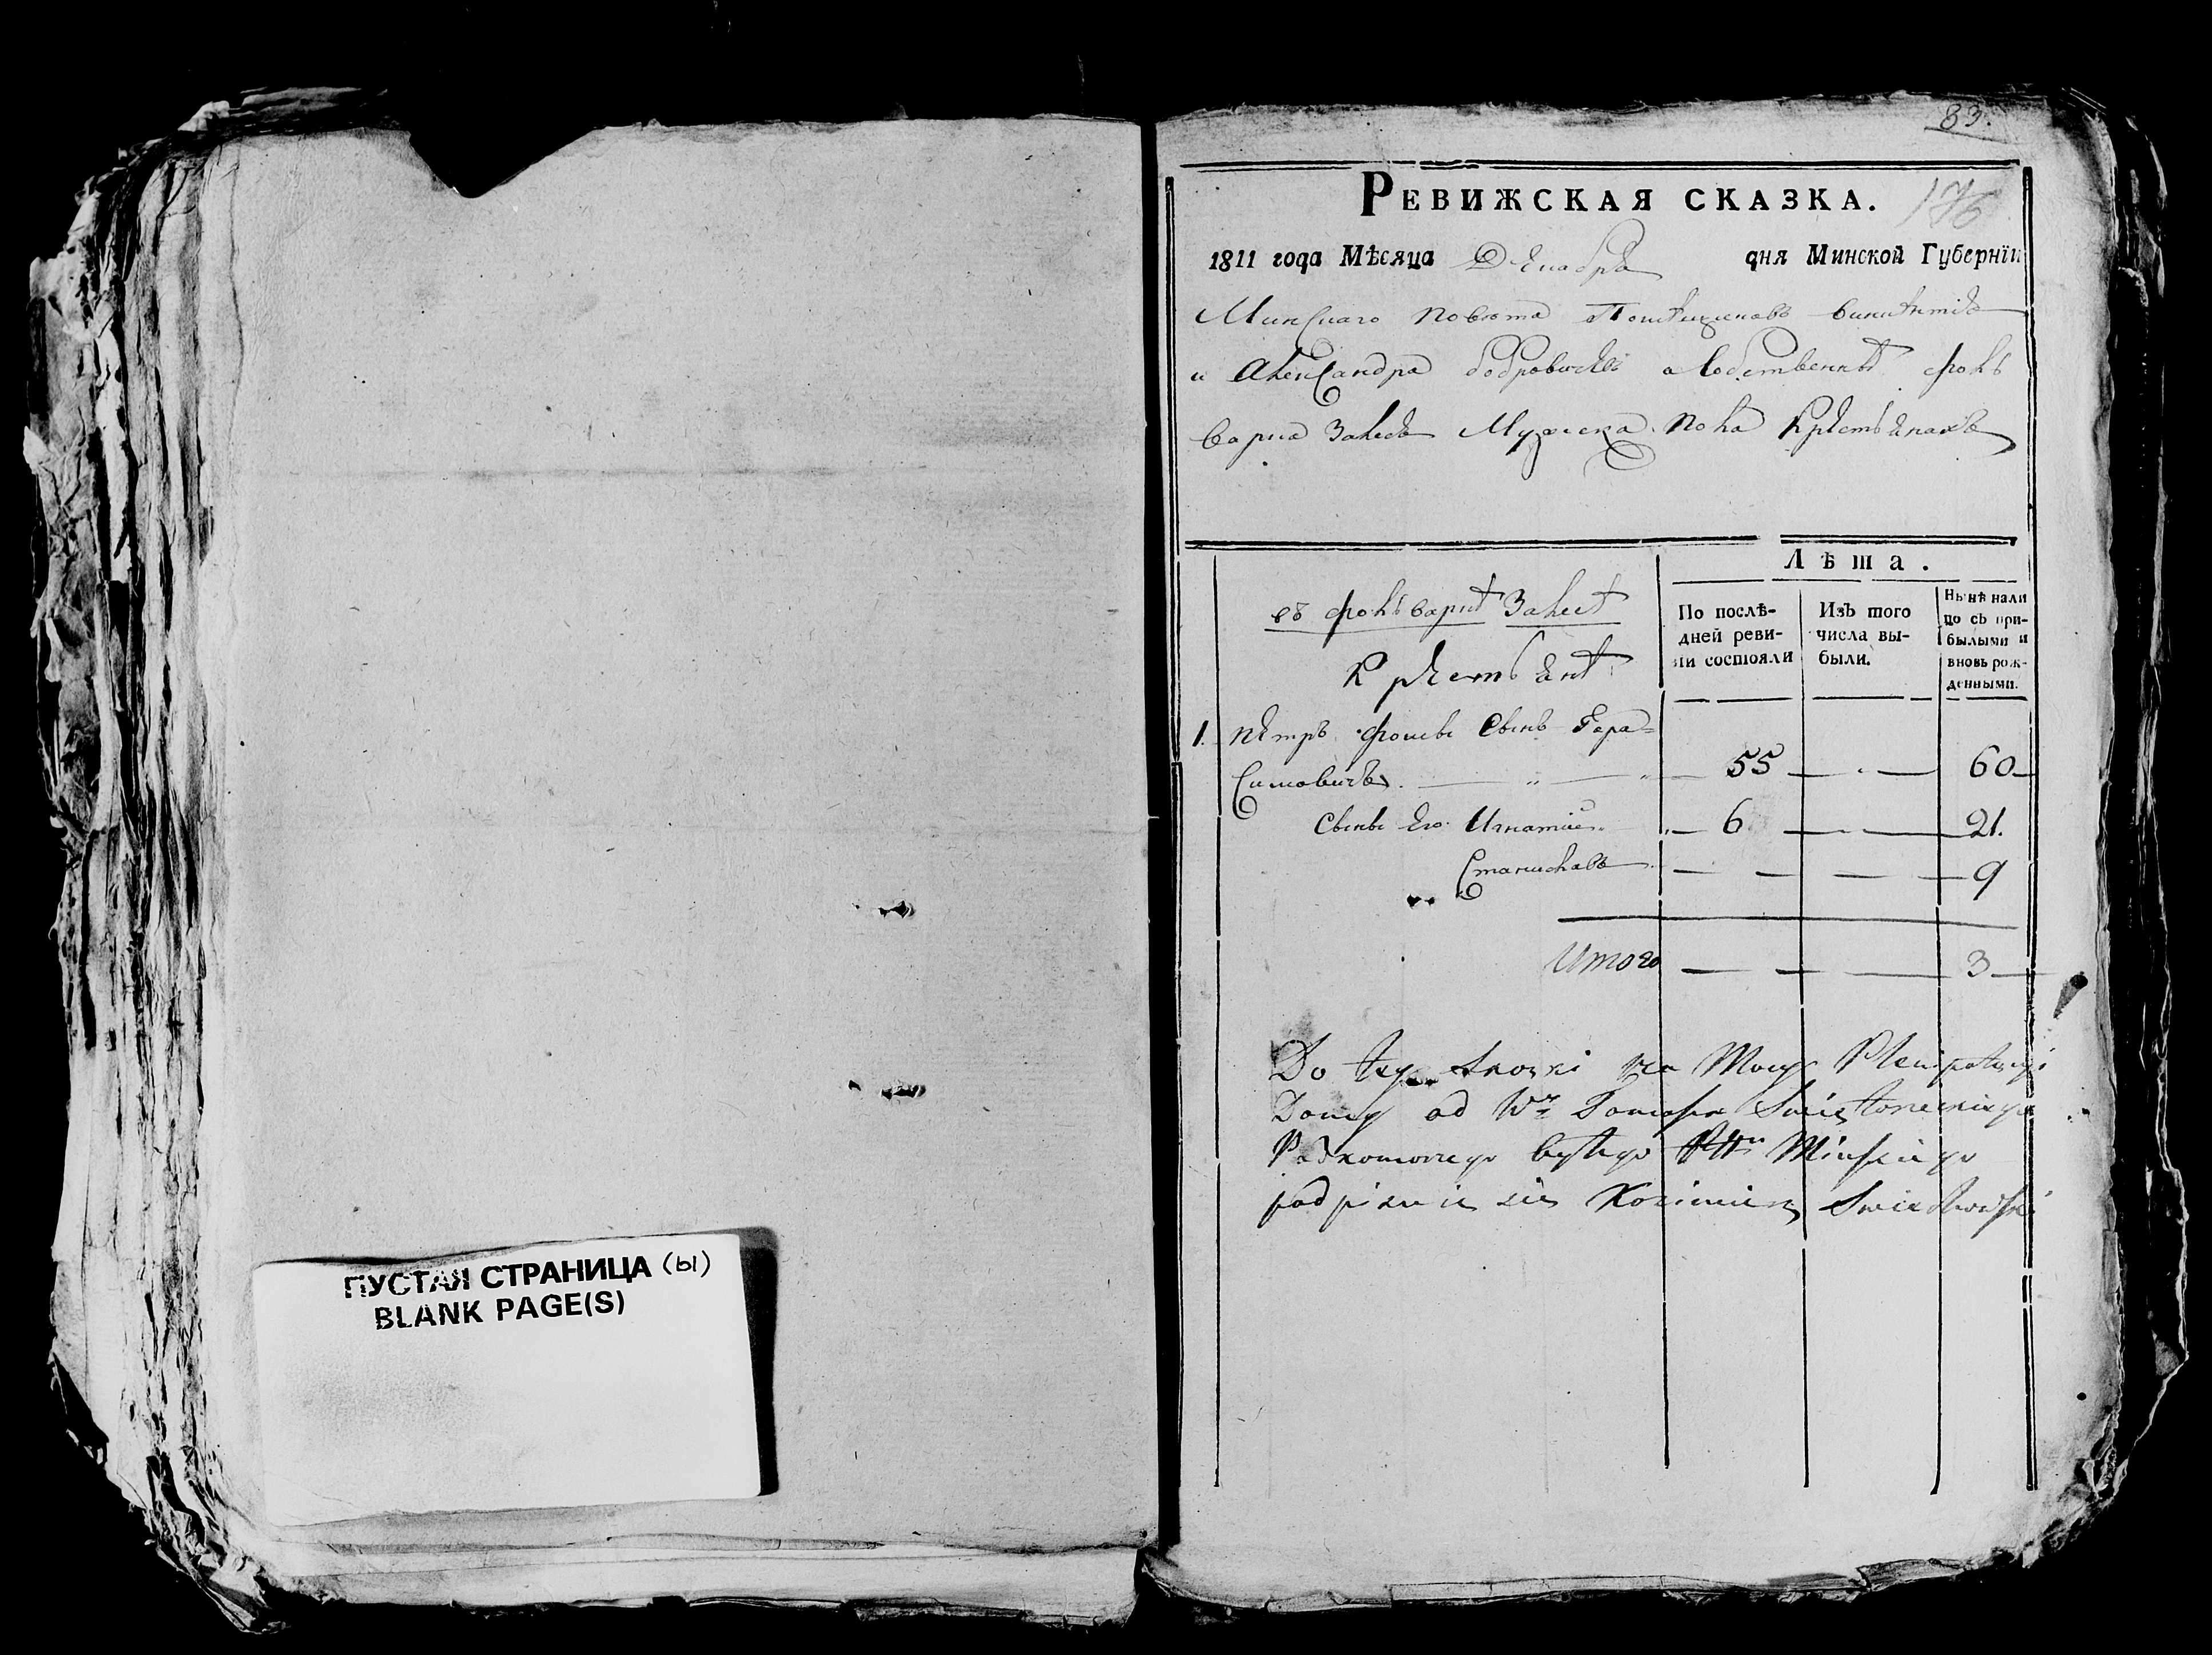 ПУСТАЯ СТРАНИЦА (ы)
BLANK PAGE(S)
83.
РЕВИЖСКАЯ СКАЗКА. 176
1811 года Мѣсяца Декабря дня Минской Губернїи
Минскаго Повѣта Помѣщиковъ Викентія
и Александра Бобровичевъ о собственнѣ фоль
варка Залесь Мужеска пола крестьянахъ
Лѣта.
въ фольваркѣ Залесѣ
Крестьянѣ
По послѣ-
дней реви-
зіи состояли
Изъ того
числа вы-
были.
Нынѣ нали
цо съ при-
былыми и
вновь рож-
денными.
1. Петръ Фомы Сынъ Гера=
симовичъ. 55 60
Сынъ Его Игнатій 6 21.
Станиславъ 9
Итого 3
Do tey skazki za Mocą Plenipotencyi
Daney od Wo Tomasza
Podkomorzego byłego Mińskiego
podpisuie się Kazimierz